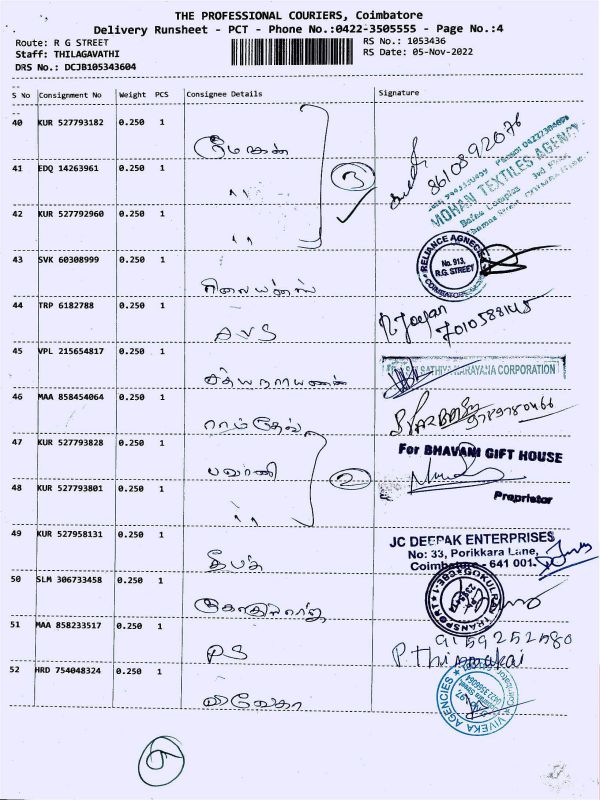 THE PROFESSIONAL COURIERS, Coimbatore
Delivery Runsheet - PCT - Phone No.:0422-3505555 - Page No.:4
Route: R G STREET
RS No.: 1053436
Staff: THILAGAVATHI
RS Date: 05-Nov-2022
DRS No.: DCJB105343604
S No Consignment No Weight PCS Consignee Details Signature
40 KUR 527793182 0.250 1 ரமேகன்
8610892076
MOHAN TEXTILES AGENCY
41 EDQ 14263961 0.250 1 ,,
3
42 KUR 527792960 0.250 1 ,,
43 SVK 60308999 0.250 1 ரிலையன்ஸ்
RELIANCE AGNECIES
No. 913,
R.G. STREET
COIMBATORE
44 TRP 6182788 0.250 1 AVS
7010588145
45 VPL 215654817 0.250 1 சத்யநாராயணன்
SATHIYANARAYANA CORPORATION
46 MAA 858454064 0.250 1 ராம்தேவ்
9789780466
47 KUR 527793828 0.250 1 பவானி
For BHAVANI GIFT HOUSE
2
Proprietor
48 KUR 527793801 0.250 1 ,,
49 KUR 527958131 0.250 1 தீபக்
JC DEEPAK ENTERPRISES
No: 33, Porikkara Lane,
Coimbatore - 641 001.
50 SLM 306733458 0.250 1 கோகுல்ராஜ்
TRANSPORT
51 MAA 858233517 0.250 1 PS
9159252580
52 HRD 754048324 0.250 1 விவேகா
VIVEKA AGENCIES